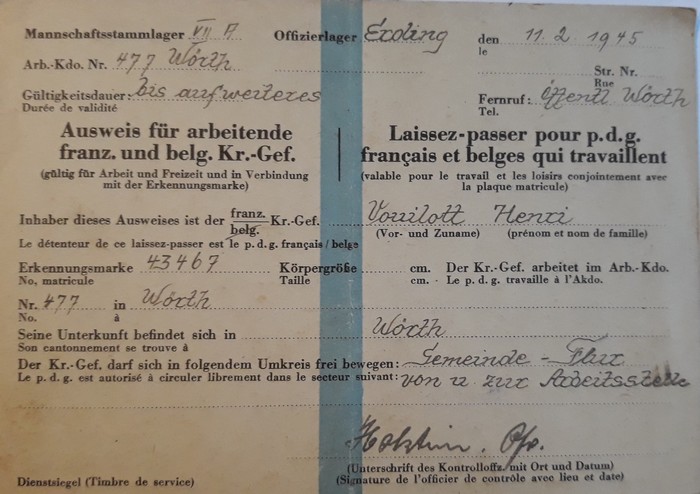 Mannschaftsstammlager VII A Offizierlager Erding den 11.2.1945
le
Arb.-Kdo. Nr. 477 Wörth Str. Nr.
Rue
Gültigkeitsdauer: bis auf weiteres Fernruf: öffentl Wörth
Durée de validité Tel.
Ausweis für arbeitende Laissez-passer pour p.d.g.
franz. und belg. Kr.-Gef. français et belges qui travaillent
(gültig für Arbeit und Freizeit und in Verbindung (valable pour le travail et les loisirs conjointement avec
mit der Erkennungsmarke) la plaque matricule)
Inhaber dieses Ausweises ist der franz. belg. Kr.-Gef. Vouilott Henri
Le détenteur de ce laissez-passer est le p.d.g. français / belge (Vor- und Zuname) (prénom et nom de famille)
Erkennungsmarke 43467 Körpergröße cm. Der Kr.-Gef. arbeitet im Arb.-Kdo.
No. matricule Taille cm. Le p.d.g. travaille à l'Akdo.
Nr. 477 in Wörth
No. à
Seine Unterkunft befindet sich in Wörth
Son cantonnement se trouve à
Der Kr.-Gef. darf sich in folgendem Umkreis frei bewegen: Gemeinde-Flur
Le p.d.g. est autorisé à circuler librement dans le secteur suivant: von u zur Arbeitsstelle
(Unterschrift des Kontrolloffz. mit Ort und Datum)
Dienstsiegel (Timbre de service) (Signature de l'officier de contrôle avec lieu et date)